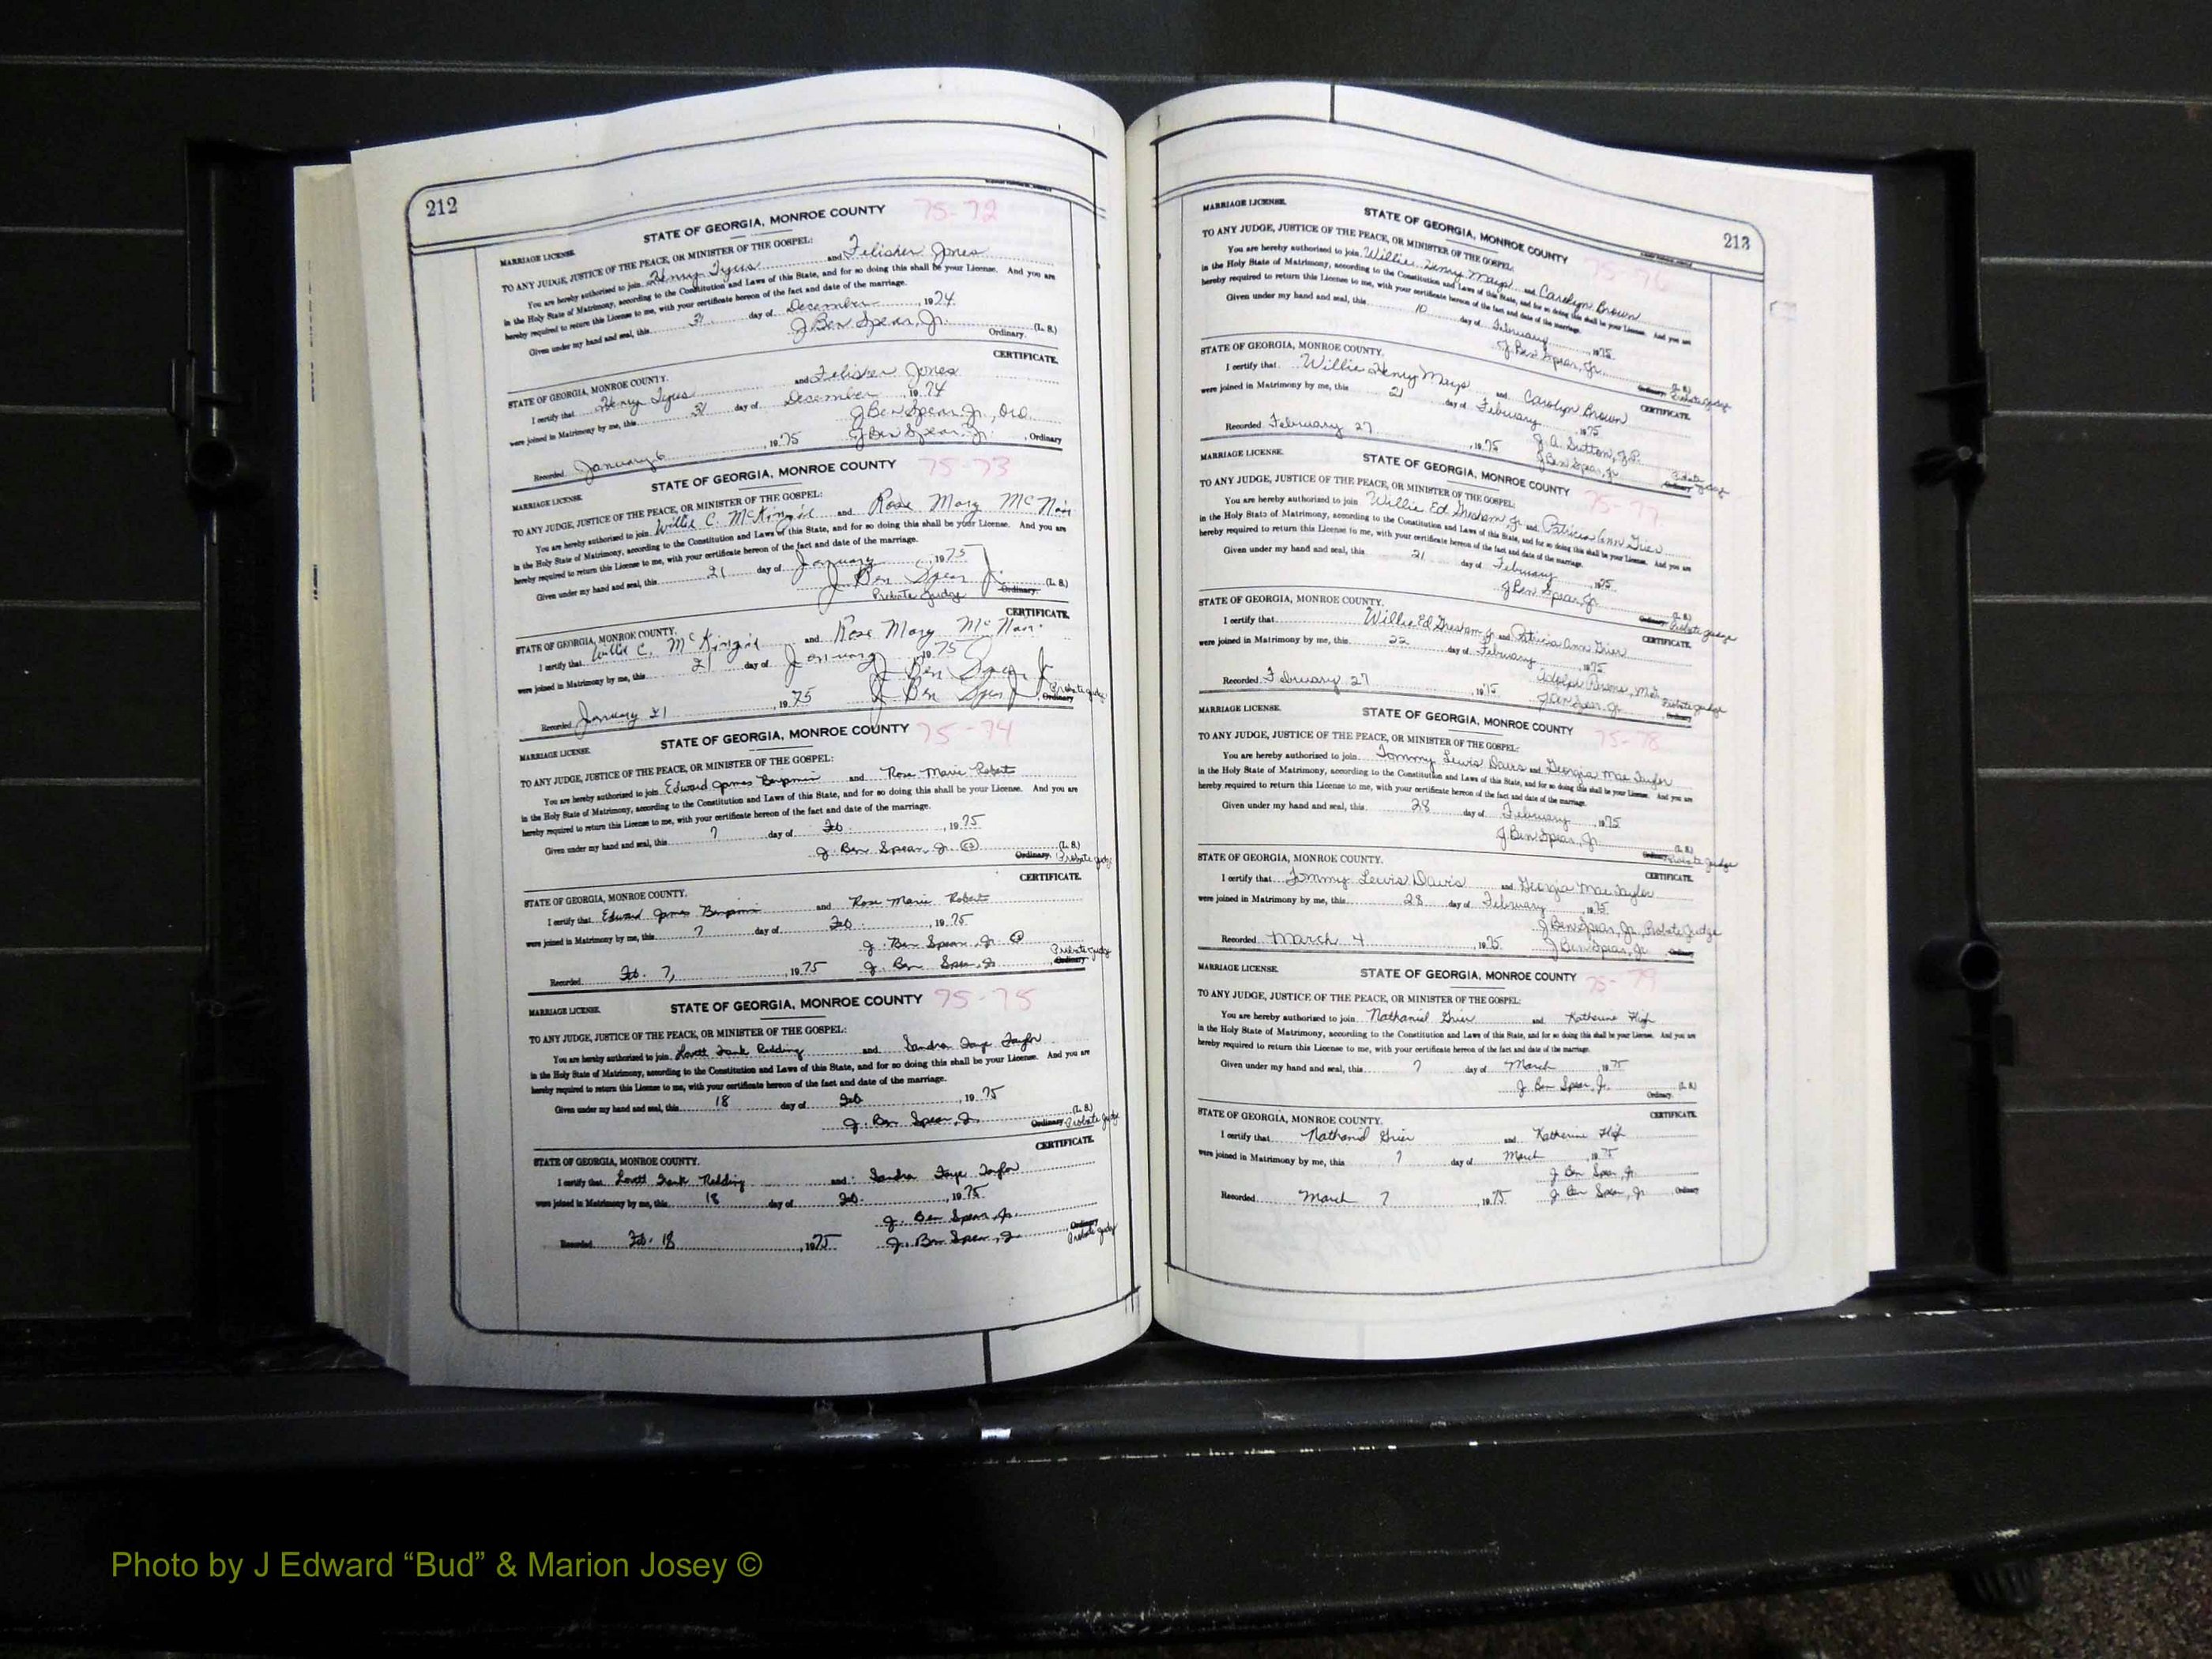 212
STATE OF GEORGIA, MONROE COUNTY 75-72
MARRIAGE LICENSE.
TO ANY JUDGE, JUSTICE OF THE PEACE, OR MINISTER OF THE GOSPEL:
You are hereby authorized to join Henry Tyus and Felisher Jones
in the Holy State of Matrimony, according to the Constitution and Laws of this State, and for so doing this shall be your License. And you are
hereby required to return this License to me, with your certificate hereon of the fact and date of the marriage.
Given under my hand and seal, this 31 day of December, 1974
J Ben Spear, Jr. (L. S.)
Ordinary.
CERTIFICATE.
STATE OF GEORGIA, MONROE COUNTY.
I certify that Henry Tyus and Felisher Jones
were joined in Matrimony by me, this 31 day of December, 1974
J Ben Spear Jr., Ord.
Recorded January 6, 1975 J Ben Spear, Jr., Ordinary
STATE OF GEORGIA, MONROE COUNTY 75-73
MARRIAGE LICENSE.
TO ANY JUDGE, JUSTICE OF THE PEACE, OR MINISTER OF THE GOSPEL:
You are hereby authorized to join Willie C. McKinzie and Rose Mary McNair
in the Holy State of Matrimony, according to the Constitution and Laws of this State, and for so doing this shall be your License. And you are
hereby required to return this License to me, with your certificate hereon of the fact and date of the marriage.
Given under my hand and seal, this 21 day of January, 1975
J Ben Spear Jr. (L. S.)
Probate Judge Ordinary.
CERTIFICATE.
STATE OF GEORGIA, MONROE COUNTY.
I certify that Willie C. McKinzie and Rose Mary McNair
were joined in Matrimony by me, this 21 day of January, 1975
J Ben Spear Jr
Recorded January 21, 1975 J Ben Spear Jr Probate Judge Ordinary
STATE OF GEORGIA, MONROE COUNTY 75-74
MARRIAGE LICENSE.
TO ANY JUDGE, JUSTICE OF THE PEACE, OR MINISTER OF THE GOSPEL:
You are hereby authorized to join Edward James Benjamin and Rose Marie Robert
in the Holy State of Matrimony, according to the Constitution and Laws of this State, and for so doing this shall be your License. And you are
hereby required to return this License to me, with your certificate hereon of the fact and date of the marriage.
Given under my hand and seal, this 7 day of Feb., 1975
J. Ben Spear, Jr. (L. S.)
Ordinary. Probate Judge
CERTIFICATE.
STATE OF GEORGIA, MONROE COUNTY.
I certify that Edward James Benjamin and Rose Marie Robert
were joined in Matrimony by me, this 7 day of Feb., 1975
J. Ben Spear, Jr.
Recorded Feb. 7, 1975 J. Ben Spear, Jr Probate Judge Ordinary
STATE OF GEORGIA, MONROE COUNTY 75-75
MARRIAGE LICENSE.
TO ANY JUDGE, JUSTICE OF THE PEACE, OR MINISTER OF THE GOSPEL:
You are hereby authorized to join Lovett Frank Redding and Sandra Faye Taylor
in the Holy State of Matrimony, according to the Constitution and Laws of this State, and for so doing this shall be your License. And you are
hereby required to return this License to me, with your certificate hereon of the fact and date of the marriage.
Given under my hand and seal, this 18 day of Feb, 1975
J. Ben Spear, Jr. (L. S.)
Ordinary Probate Judge
CERTIFICATE.
STATE OF GEORGIA, MONROE COUNTY.
I certify that Lovett Frank Redding and Sandra Faye Taylor
were joined in Matrimony by me, this 18 day of Feb., 1975
J. Ben Spear, Jr.
Recorded Feb. 18, 1975 J. Ben Spear, Jr Ordinary Probate Judge
213
MARRIAGE LICENSE.
STATE OF GEORGIA, MONROE COUNTY 75-76
TO ANY JUDGE, JUSTICE OF THE PEACE, OR MINISTER OF THE GOSPEL:
You are hereby authorized to join Willie Henry Mays and Carolyn Brown
in the Holy State of Matrimony, according to the Constitution and Laws of this State, and for so doing this shall be your License. And you are
hereby required to return this License to me, with your certificate hereon of the fact and date of the marriage.
Given under my hand and seal, this 10 day of February, 1975
J. Ben Spear, Jr. (L. S.)
Ordinary. Probate Judge
STATE OF GEORGIA, MONROE COUNTY. CERTIFICATE.
I certify that Willie Henry Mays and Carolyn Brown
were joined in Matrimony by me, this 21 day of February, 1975
J. A. Sutton, J.P.
Recorded February 27, 1975 J Ben Spear, Jr Probate Judge Ordinary
MARRIAGE LICENSE.
STATE OF GEORGIA, MONROE COUNTY 75-77
TO ANY JUDGE, JUSTICE OF THE PEACE, OR MINISTER OF THE GOSPEL:
You are hereby authorized to join Willie Ed Gresham Jr. and Patricia Ann Grier
in the Holy State of Matrimony, according to the Constitution and Laws of this State, and for so doing this shall be your License. And you are
hereby required to return this License to me, with your certificate hereon of the fact and date of the marriage.
Given under my hand and seal, this 21 day of February, 1975
J Ben Spear, Jr. (L. S.)
Ordinary. Probate Judge
STATE OF GEORGIA, MONROE COUNTY. CERTIFICATE.
I certify that Willie Ed Gresham, Jr. and Patricia Ann Grier
were joined in Matrimony by me, this 22 day of February, 1975
Adolph Persons, M.G.
Recorded February 27, 1975 J Ben Spear, Jr. Probate Judge Ordinary
MARRIAGE LICENSE.
STATE OF GEORGIA, MONROE COUNTY 75-78
TO ANY JUDGE, JUSTICE OF THE PEACE, OR MINISTER OF THE GOSPEL:
You are hereby authorized to join Tommy Lewis Davis and Georgia Mae Taylor
in the Holy State of Matrimony, according to the Constitution and Laws of this State, and for so doing this shall be your License. And you are
hereby required to return this License to me, with your certificate hereon of the fact and date of the marriage.
Given under my hand and seal, this 28 day of February, 1975
J. Ben Spear, Jr. (L. S.)
Ordinary Probate Judge
STATE OF GEORGIA, MONROE COUNTY. CERTIFICATE.
I certify that Tommy Lewis Davis and Georgia Mae Taylor
were joined in Matrimony by me, this 28 day of February, 1975
J Ben Spear, Jr., Probate Judge
Recorded March 4, 1975 J Ben Spear, Jr Ordinary
MARRIAGE LICENSE.
STATE OF GEORGIA, MONROE COUNTY 75-79
TO ANY JUDGE, JUSTICE OF THE PEACE, OR MINISTER OF THE GOSPEL:
You are hereby authorized to join Nathaniel Grier and Katherine High
in the Holy State of Matrimony, according to the Constitution and Laws of this State, and for so doing this shall be your License. And you are
hereby required to return this License to me, with your certificate hereon of the fact and date of the marriage.
Given under my hand and seal, this 7 day of March, 1975
J Ben Spear, Jr. (L. S.)
Ordinary.
STATE OF GEORGIA, MONROE COUNTY. CERTIFICATE.
I certify that Nathaniel Grier and Katherine High
were joined in Matrimony by me, this 7 day of March, 1975
J Ben Spear, Jr.
Recorded March 7, 1975 J Ben Spear, Jr. Ordinary
Photo by J Edward “Bud” & Marion Josey ©